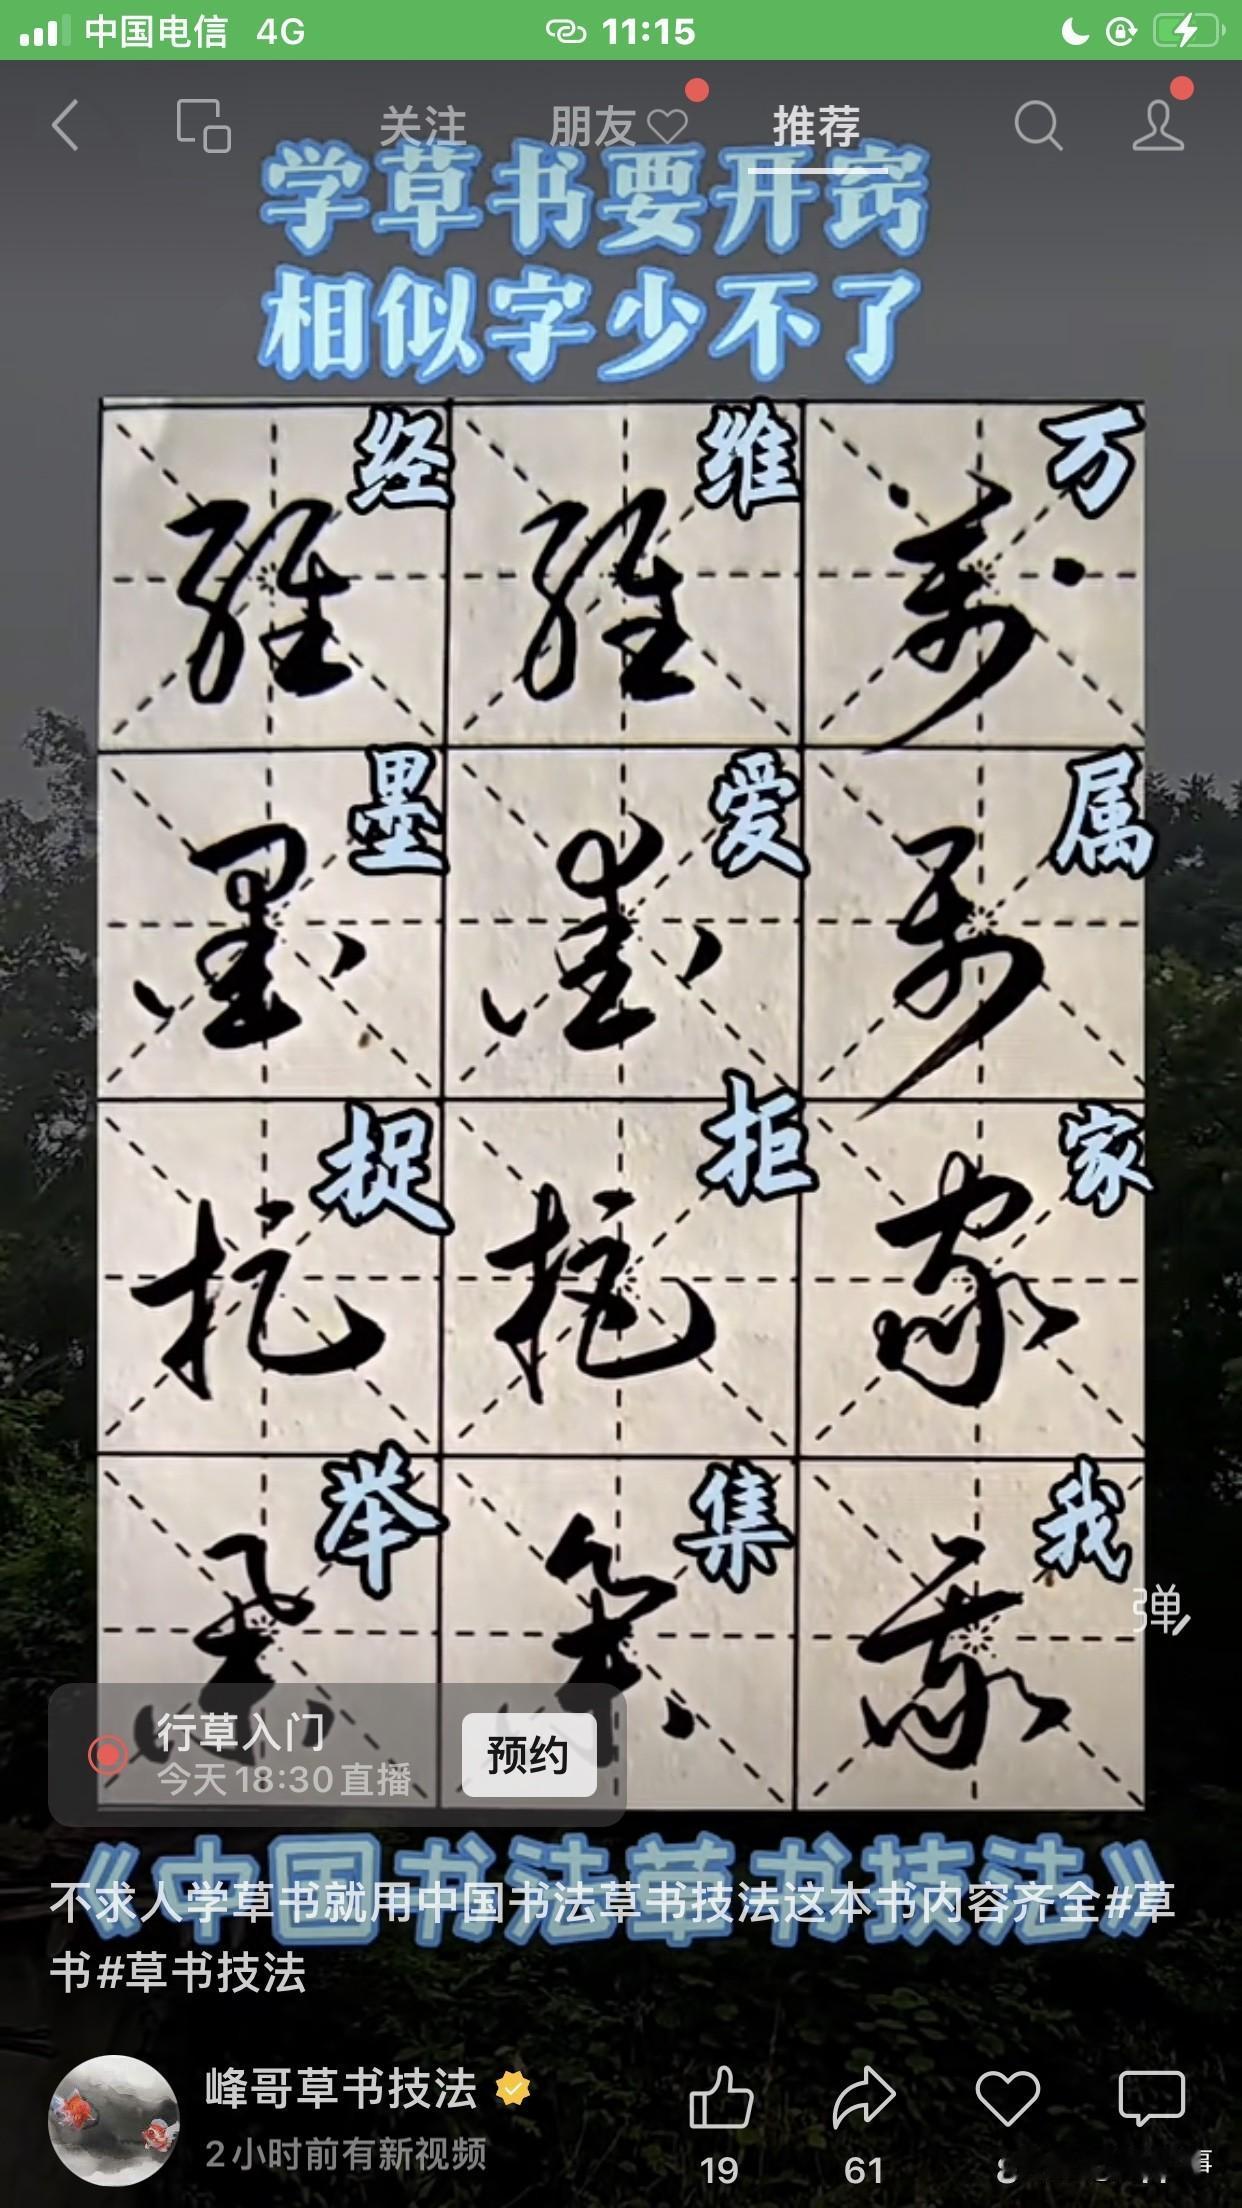 中国电信 4G 11:15
关注 朋友 推荐
学草书要开窍
相似字少不了
经 维 万
墨 爱 属
捉 拒 家
举 集 我
弹
行草入门
今天18:30直播
预约
《中国书法草书技法》
不求人学草书就用中国书法草书技法这本书内容齐全#草
书#草书技法
峰哥草书技法
2小时前有新视频
19 61